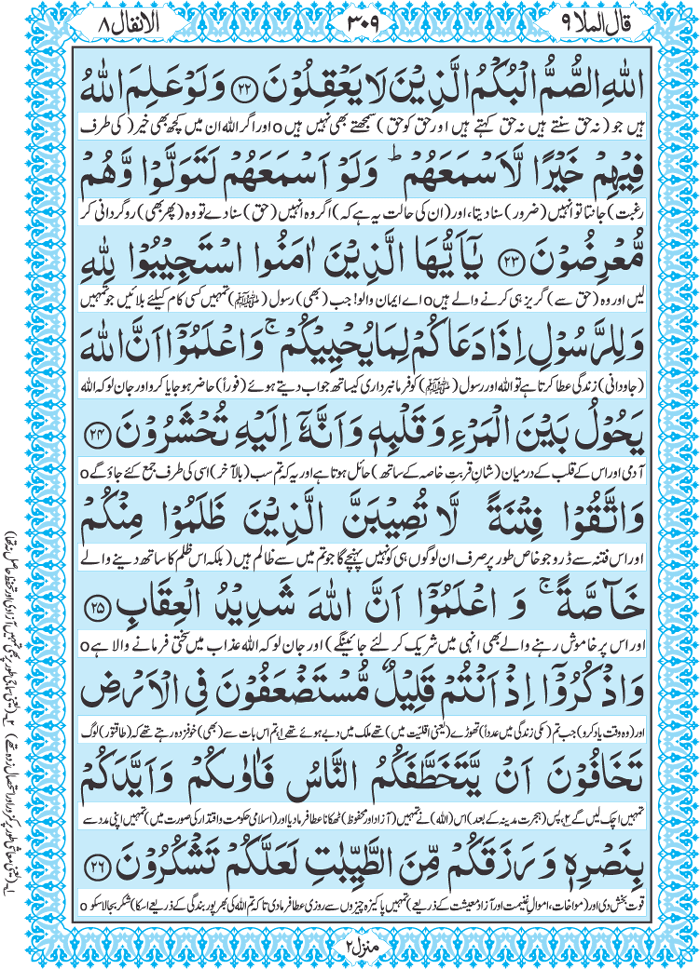 قال الملا ٩
٣٠٩
الانفال ٨
اللهِ الصُّمُّ الْبُكْمُ الَّذِيْنَ لَا يَعْقِلُوْنَ ﴿٢٢﴾ وَلَوْ عَلِمَ اللهُ
ہیں جو (نہ حق سنتے ہیں نہ حق کہتے ہیں اور حق کو حق) سمجھتے بھی نہیں ہیں o اور اگر اللہ ان میں کچھ بھی خیر (کی طرف
فِيْهِمْ خَيْرًا لَّاَسْمَعَهُمْ ؕ وَلَوْ اَسْمَعَهُمْ لَتَوَلَّوْا وَّهُمْ
رغبت) جانتا تو انہیں (ضرور) سنا دیتا، اور (ان کی حالت یہ ہے کہ) اگر وہ انہیں (حق) سنا دے تو وہ (پھر بھی) روگردانی کر
مُّعْرِضُوْنَ ﴿٢٣﴾ يٰۤاَيُّهَا الَّذِيْنَ اٰمَنُوا اسْتَجِيْبُوْا لِلّٰهِ
لیں اور وہ (حق سے) گریز ہی کرنے والے ہیں o اے ایمان والو! جب (بھی) رسول (ﷺ) تمہیں کسی کام کیلئے بلائیں جو تمہیں
وَلِلرَّسُوْلِ اِذَا دَعَاكُمْ لِمَا يُحْيِيْكُمْ ۚ وَاعْلَمُوْۤا اَنَّ اللهَ
(جاودانی) زندگی عطا کرتا ہے تو اللہ اور رسول (ﷺ) کو فرمانبرداری کیساتھ جواب دیتے ہوئے (فوراً) حاضر ہو جایا کرو اور جان لو کہ اللہ
يَحُوْلُ بَيْنَ الْمَرْءِ وَقَلْبِهٖ وَاَنَّهٗۤ اِلَيْهِ تُحْشَرُوْنَ ﴿٢٤﴾
آدمی اور اس کے قلب کے درمیان (شانِ قربتِ خاصہ کے ساتھ) حائل ہوتا ہے اور یہ کہ تم سب (بالآخر) اسی کی طرف جمع کئے جاؤ گے o
وَاتَّقُوْا فِتْنَةً لَّا تُصِيْبَنَّ الَّذِيْنَ ظَلَمُوْا مِنْكُمْ
اور اس فتنہ سے ڈرو جو خاص طور پر صرف ان لوگوں ہی کو نہیں پہنچے گا جو تم میں سے ظالم ہیں (بلکہ اس ظلم کا ساتھ دینے والے
خَآصَّةً ۚ وَاعْلَمُوْۤا اَنَّ اللهَ شَدِيْدُ الْعِقَابِ ﴿٢٥﴾
اور اس پر خاموش رہنے والے بھی انہی میں شریک کر لئے جائینگے) اور جان لو کہ اللہ عذاب میں سختی فرمانے والا ہے o
وَاذْكُرُوْۤا اِذْ اَنْتُمْ قَلِيْلٌ مُّسْتَضْعَفُوْنَ فِي الْاَرْضِ
اور (وہ وقت یاد کرو) جب تم (مکی زندگی میں عدداً) تھوڑے (یعنی اقلیت میں) تھے ملک میں دبے ہوئے تھے ۱؎ تم اس بات سے (بھی) خوفزدہ رہتے تھے کہ (طاقتور) لوگ
تَخَافُوْنَ اَنْ يَّتَخَطَّفَكُمُ النَّاسُ فَاٰوٰىكُمْ وَاَيَّدَكُمْ
تمہیں اچک لیں گے ۲؎، پس (ہجرت مدینہ کے بعد) اس (اللہ) نے تمہیں (آزاد اور محفوظ) ٹھکانا عطا فرما دیا اور (اسلامی حکومت و اقتدار کی صورت میں) تمہیں اپنی مدد سے
بِنَصْرِهٖ وَرَزَقَكُمْ مِّنَ الطَّيِّبٰتِ لَعَلَّكُمْ تَشْكُرُوْنَ ﴿٢٦﴾
قوت بخش دی اور (مواخات، اموالِ غنیمت اور آزاد معیشت کے ذریعے) تمہیں پاکیزہ چیزوں سے روزی عطا فرما دی تاکہ تم اللہ کی بھرپور بندگی کے ذریعے اسکا) شکر بجا لا سکو o
منزل ٢
۱؎ (یعنی معاشی طور پر کمزور اور استحصال زدہ تھے) ۲؎ (یعنی سماجی طور پر بھی تمہیں آزادی اور تحفظ حاصل نہ تھا)